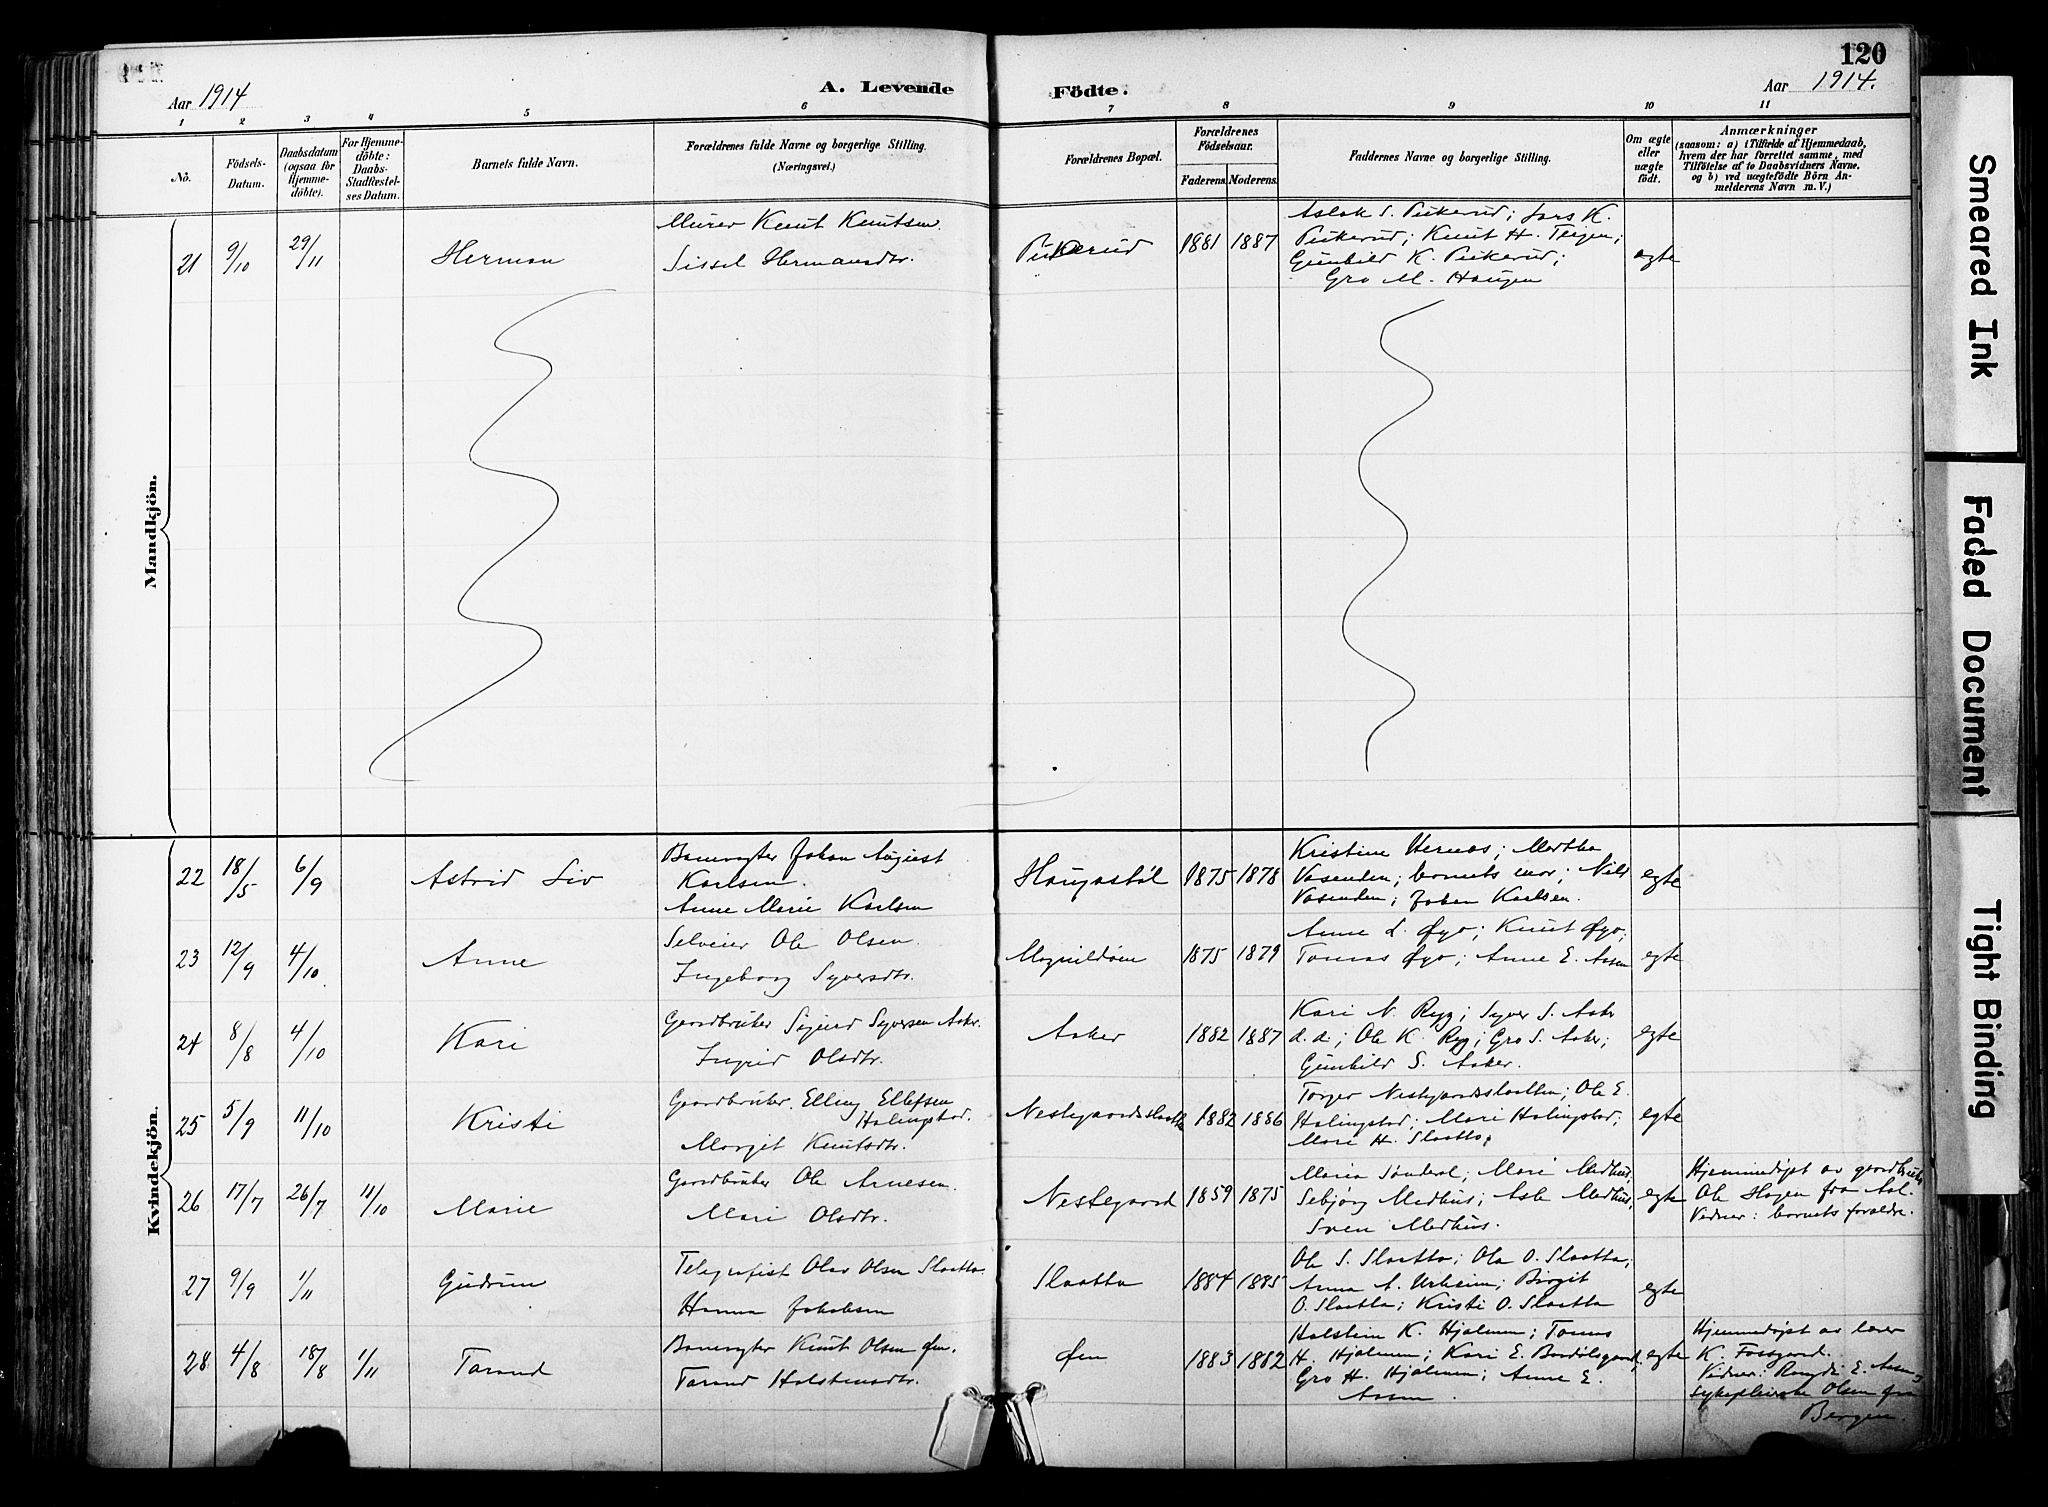 120
Aar 1914
A. Levende
Födte.
Aar 1914.
1 2 3 4 5 6 7 8 9 10 11
No.
Födsels-
Datum.
Daabsdatum
(ogsaa for
Hjemme-
döbte).
For Hjemme-
döbte:
Daabs-
Stadfæstel-
ses Datum.
Barnets fulde Navn.
Forældrenes fulde Navne og borgerlige Stilling.
(Næringsvei.)
Forældrenes Bopæl.
Forældrenes
Födselsaar.
Faderens.
Moderens.
Faddernes Navne og borgerlige Stilling.
Om ægte
eller
uægte
født.
Anmærkninger
(saasom: a) i Tilfælde af Hjemmedaab,
hvem der har forrettet samme, med
Tilföielse af to Daabsvidners Navne.
og b) ved uægtefödte Börn An-
melderens Navn m. V.)
Mandkjön.
21 9/10 29/11 Herman
Murer Knut Knutsen.
Sissel Hermansdtr.
Pukerud 1881 1887
Aslak S. Pukerud; Lars K.
Pukerud; Knut H. Teigen;
Gunhild K. Pukerud;
Gro M. Haugen
egte
Kvindekjön.
22 18/5 6/9 Astrid Liv
Banevogter Johan August
Karlsen.
Anne Marie Karlsen
Haugastöl 1875 1878
Kristine Hernes; Martha
Vasenden; barnets mor; Nils
Vasenden; Johan Karlsen.
egte
23 12/9 4/10. Anne
Selveier Ole Olsen.
Ingeborg Syversdtr.
Magnildøen 1875 1879
Anne L. Øyo; Knut Øyo;
Tomas Øyo; Anne E. Aasen
egte
24 8/8 4/10 Kari
Gaardbruker Sigurd Syversen Aaker.
Ingrid Olsdtr.
Aaker 1882 1887
Kari N. Rygg; Syver S. Aaker
d. d.; Ole K. Rygg; Gro S. Aaker;
Gunhild S. Aaker.
egte
25 5/9 11/10 Kristi
Gaardbruker. Elling Ellefsen
Halingstad.
Margit Knutsdtr.
Nestegaardsslaatta 1882 1886
Torger Nestegaardsslaatten; Ole E.
Halingstad; Mari Halingstad;
Mari H. Slaatta.
egte
26 17/7 26/7 11/10 Marie
Gaardbruker Ole Arnesen.
Mari Olsdtr.
Nestegaard 1859 1875
Maria Sønderal; Mari Medhus;
Sebjørg Medhus; Asle Medhus;
Sven Medhus.
egte
Hjemmedøpt av gaardbruker
Ole Hagen fra Aal.
Vidner: barnets forældre.
27 9/9 1/11 Gudrun
Telegrafist Olav Olsen Slaatta.
Hanna Jakobsen
Slaatta 1884 1885
Ole S. Slaatta; Ola O. Slaatta;
Anna A. Urheim; Birgit
O. Slaatta; Kristi O. Slaatta
egte
28 4/8 18/8 1/11 Tarand
Banevogter Knut Olsen Øen.
Tarand Halstensdtr.
Øen 1883 1882
Halstein K. Hjalmen; Tomas
H. Hjalmen; Kari E. Bardølsgaard;
Gro H. Hjalmen; Anne E.
Aasen
egte
Hjemmedøpt av lærer
K. Fossgard.
Vidner: Randi E. Aasen,
sykepleierske Olsen fra
Bergen.
Smeared Ink
Faded Document
Tight Binding